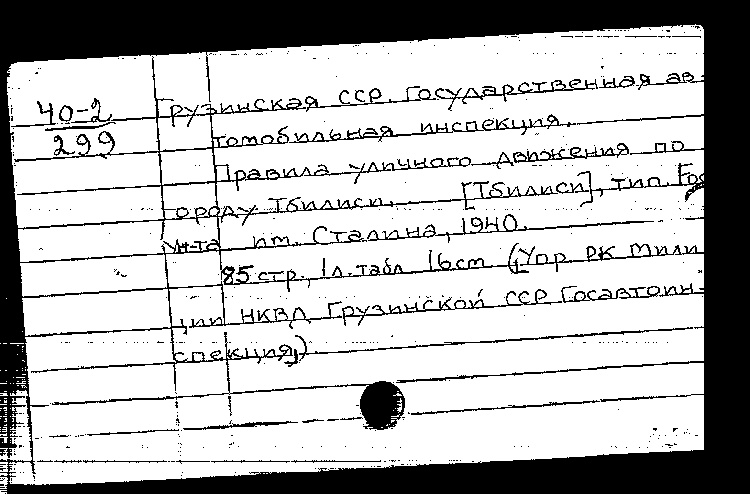 40-2
299
Грузинская ССР. Государственная ав-
томобильная инспекция.
Правила уличного движения по
городу Тбилиси. [Тбилиси], тип. Гос
ун-та им. Сталина, 1940.
85 стр., 1 л. табл 16 см (Упр РК Мили
ции НКВД Грузинской ССР Госавтоин-
спекция)